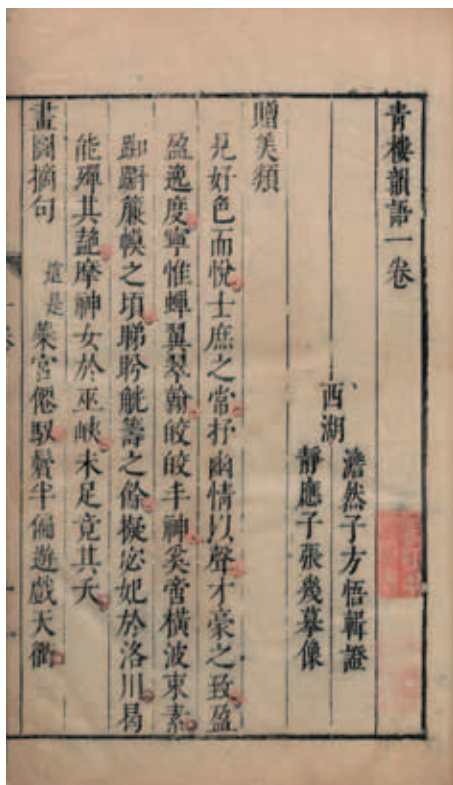 青樓韻語一卷
西湖
澹然子方悟輯證
靜應子張幾摹像
贈美類
見好色而悅士庶之常抒幽情以聲才豪之致盈
盈逸度寧惟蟬翼翠翰皎皎丰神奚啻橫波束素
踟躕簾幙之頃睇盻觥籌之餘擬宓妃於洛川曷
能殫其艷摩神女於巫峽未足竟其夭
畫圖摘句
這是蘂宮僊馭
半偏遊戲天衢